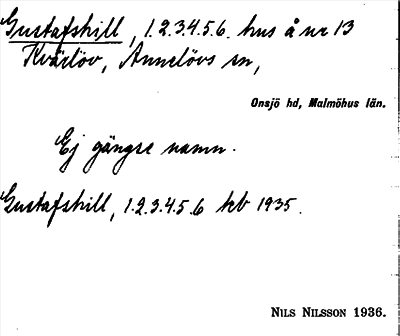 Gustafshill, 1.2.3.4.5.6. hus å nr 13
Kvärlöv, Annelövs sn,
Onsjö hd, Malmöhus län.
Ej gängse namn.
Gustafshill, 1.2.3.4.5.6 kb 1935.
NILS NILSSON 1936.